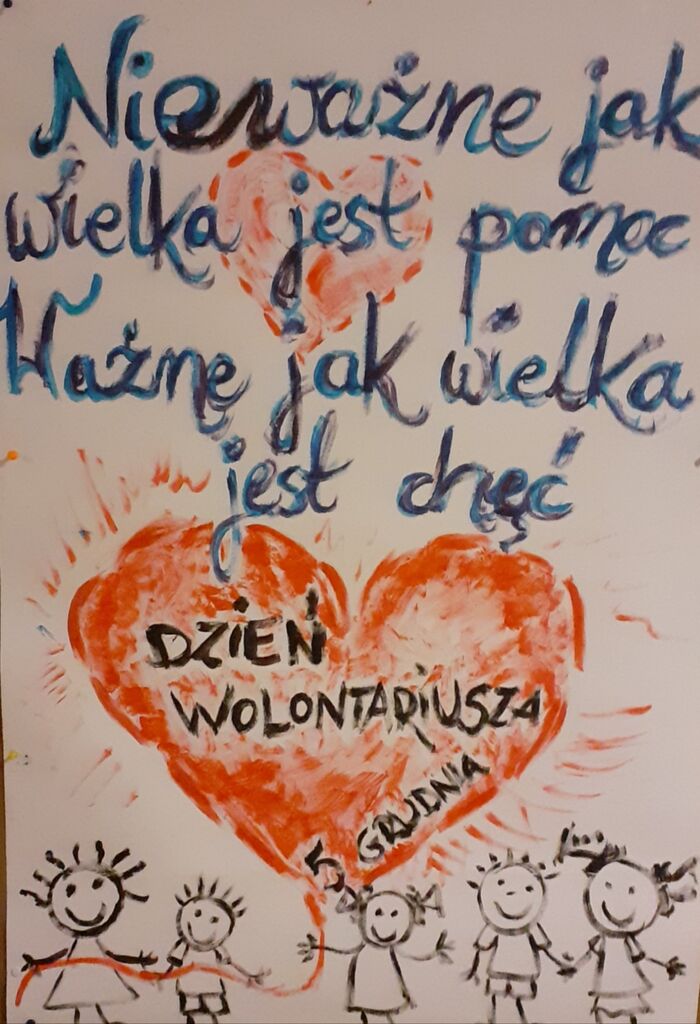 Nieważne jak
wielka jest pomoc
Ważnę jak wielka
jest chęć
DZIEŃ
WOLONTARIUSZA
5 GRUDNIA